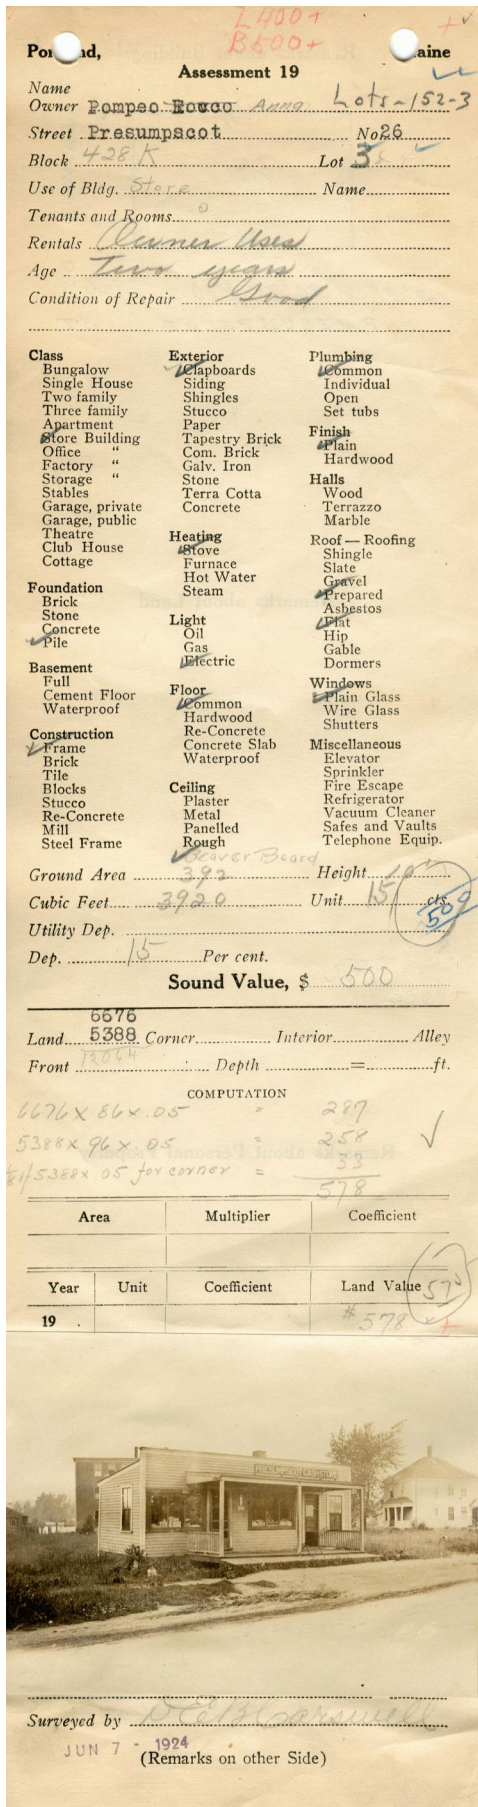 L400+
B500+
+
Portland, Maine
Assessment 19
Name
Owner Pompeo Rocco Anna Lots-152-3
Street Presumpscot No 26
Block 428 K Lot 3
Use of Bldg. Store Name
Tenants and Rooms 0
Rentals Owner Uses
Age Two years
Condition of Repair Good
Class
Bungalow
Single House
Two family
Three family
Apartment
Store Building
Office "
Factory "
Storage "
Stables
Garage, private
Garage, public
Theatre
Club House
Cottage
Foundation
Brick
Stone
Concrete
Pile
Basement
Full
Cement Floor
Waterproof
Construction
Frame
Brick
Tile
Blocks
Stucco
Re-Concrete
Mill
Steel Frame
Exterior
Clapboards
Siding
Shingles
Stucco
Paper
Tapestry Brick
Com. Brick
Galv. Iron
Stone
Terra Cotta
Concrete
Heating
Stove
Furnace
Hot Water
Steam
Light
Oil
Gas
Electric
Floor
Common
Hardwood
Re-Concrete
Concrete Slab
Waterproof
Ceiling
Plaster
Metal
Panelled
Rough
Beaver Board
Plumbing
Common
Individual
Open
Set tubs
Finish
Plain
Hardwood
Halls
Wood
Terrazzo
Marble
Roof — Roofing
Shingle
Slate
Gravel
Prepared
Asbestos
Flat
Hip
Gable
Dormers
Windows
Plain Glass
Wire Glass
Shutters
Miscellaneous
Elevator
Sprinkler
Fire Escape
Refrigerator
Vacuum Cleaner
Safes and Vaults
Telephone Equip.
Ground Area 392 Height 10'
Cubic Feet 3920 Unit 15 cts.
500
Utility Dep.
Dep. 15 Per cent.
Sound Value, $ 500
6676
Land 5388 Corner Interior Alley
Front 12064 Depth = ft.
COMPUTATION
6676 x 86 x .05 " 287
5388 x 96 x .05 " 258
5388 x 05 for corner = 33
578
Area Multiplier Coefficient
Year Unit Coefficient Land Value
19 $578 +
PRESUMPSCOT CASH STORE
Surveyed by
JUN 7 - 1924
(Remarks on other Side)